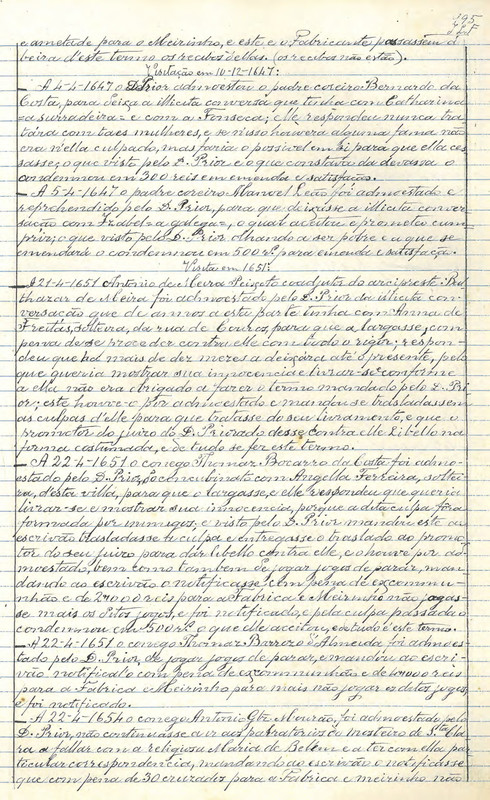 195
e ametade para o Meirinho, e este e o Fabricante passassem á
beira d'este termo os recibos d'ellas. (os recibos não estão).
Visitação em 10-12-1647:
— A 4-4-1647 o D. Prior admoestou o padre coreiro Bernardo da
Costa, para deixar a illicita conversa que tinha com Catharina
= a surradeira = e com a Fonseca; elle respondeu nunca tra-
tára com taes mulheres, e se n'isso houvera alguma fama não
era n'ella culpado, mas faria o possivel em si para que ella ces-
sasse; o que visto pelo D. Prior e o que constava da devassa o
condemnou em 300 reis em emenda e satisfação.
— A 5-4-1647 o padre coreiro Manoel Leão foi admoestado e
reprehendido pelo D. Prior, para que deixasse a illicita conver-
sação com Izabel = a galega =, o qual aceitou e prometeu cum-
prir; o que visto pelo D. Prior olhando a ser pobre e a que se
emendará o condemnou em 500 rs. para emenda e satisfação.
Visita em 1651:
— A 21-4-1651 Antonio de Meira Peixoto coadjutor do arcipreste Bal-
thazar de Meira foi admoestado pelo D. Prior da illicita con-
versação que de annos a esta parte tinha com Anna de
Freitas, solteira, da rua de Couros, para que a largasse, com
pena de se proceder contra elle com tudo o rigor; respon-
deu que há mais de dez mezes a deixára até o presente, pelo
que queria mostrar sua innocencia e livrar-se conforme
a ella não era obrigado a fazer o termo mandado pelo D. Pri-
or; este houve-o por admoestado e mandou se trasladassem
as culpas d'elle para que tratasse do seu livramento, e que o
promotor do juizo do D. Priorado desse contra elle libello na
forma costumada, e de tudo se fez este termo.
— A 22-4-1651 o conego Thomaz Bocarro da Costa foi admo-
estado pelo D. Prior, do concubinato com Angella Ferreira, soltei-
ra, d'esta villa, para que o largasse, e elle respondeu que queria
livrar-se e mostrar sua innocencia, porque a dita culpa fôra
formada por inimigos, e visto pelo D. Prior mandou este ao
escrivão trasladasse a culpa e entregasse o traslado ao promo-
tor do seu juizo para dar libello contra elle, e o houve por ad-
moestado, bem como tambem de jogar jogos de parar, man-
dando ao escrivão o notificasse com pena de excommu-
nhão e de 2$000 reis para a Fabrica e Meirinho não jogas-
se mais os ditos jogos, e foi notificado, e pela culpa passada o
condemnou em 500 rs. o que elle aceitou, e de tudo é este termo.
— A 22-4-1651 o conego Thomaz Barrozo d' Almeida foi admoes-
tado pelo D. Prior, de jogar jogos de parar, e mandou ao escri-
vão notifical-o com pena de excommunhão e de reis
para a Fabrica e Meirinho para mais não jogar os ditos jogos,
e foi notificado.
— A 22-4-1654 o conego Antonio Mourão, foi admoestado pelo
D. Prior, não continuasse a ir aos parlatorios do mosteiro de Sta Cla-
ra a fallar com a religiosa Maria de Bellem e a ter com ella par-
ticular correspondencia, mandando ao escrivão o notificasse
que com pena de 30 cruzados para a Fabrica e meirinho não